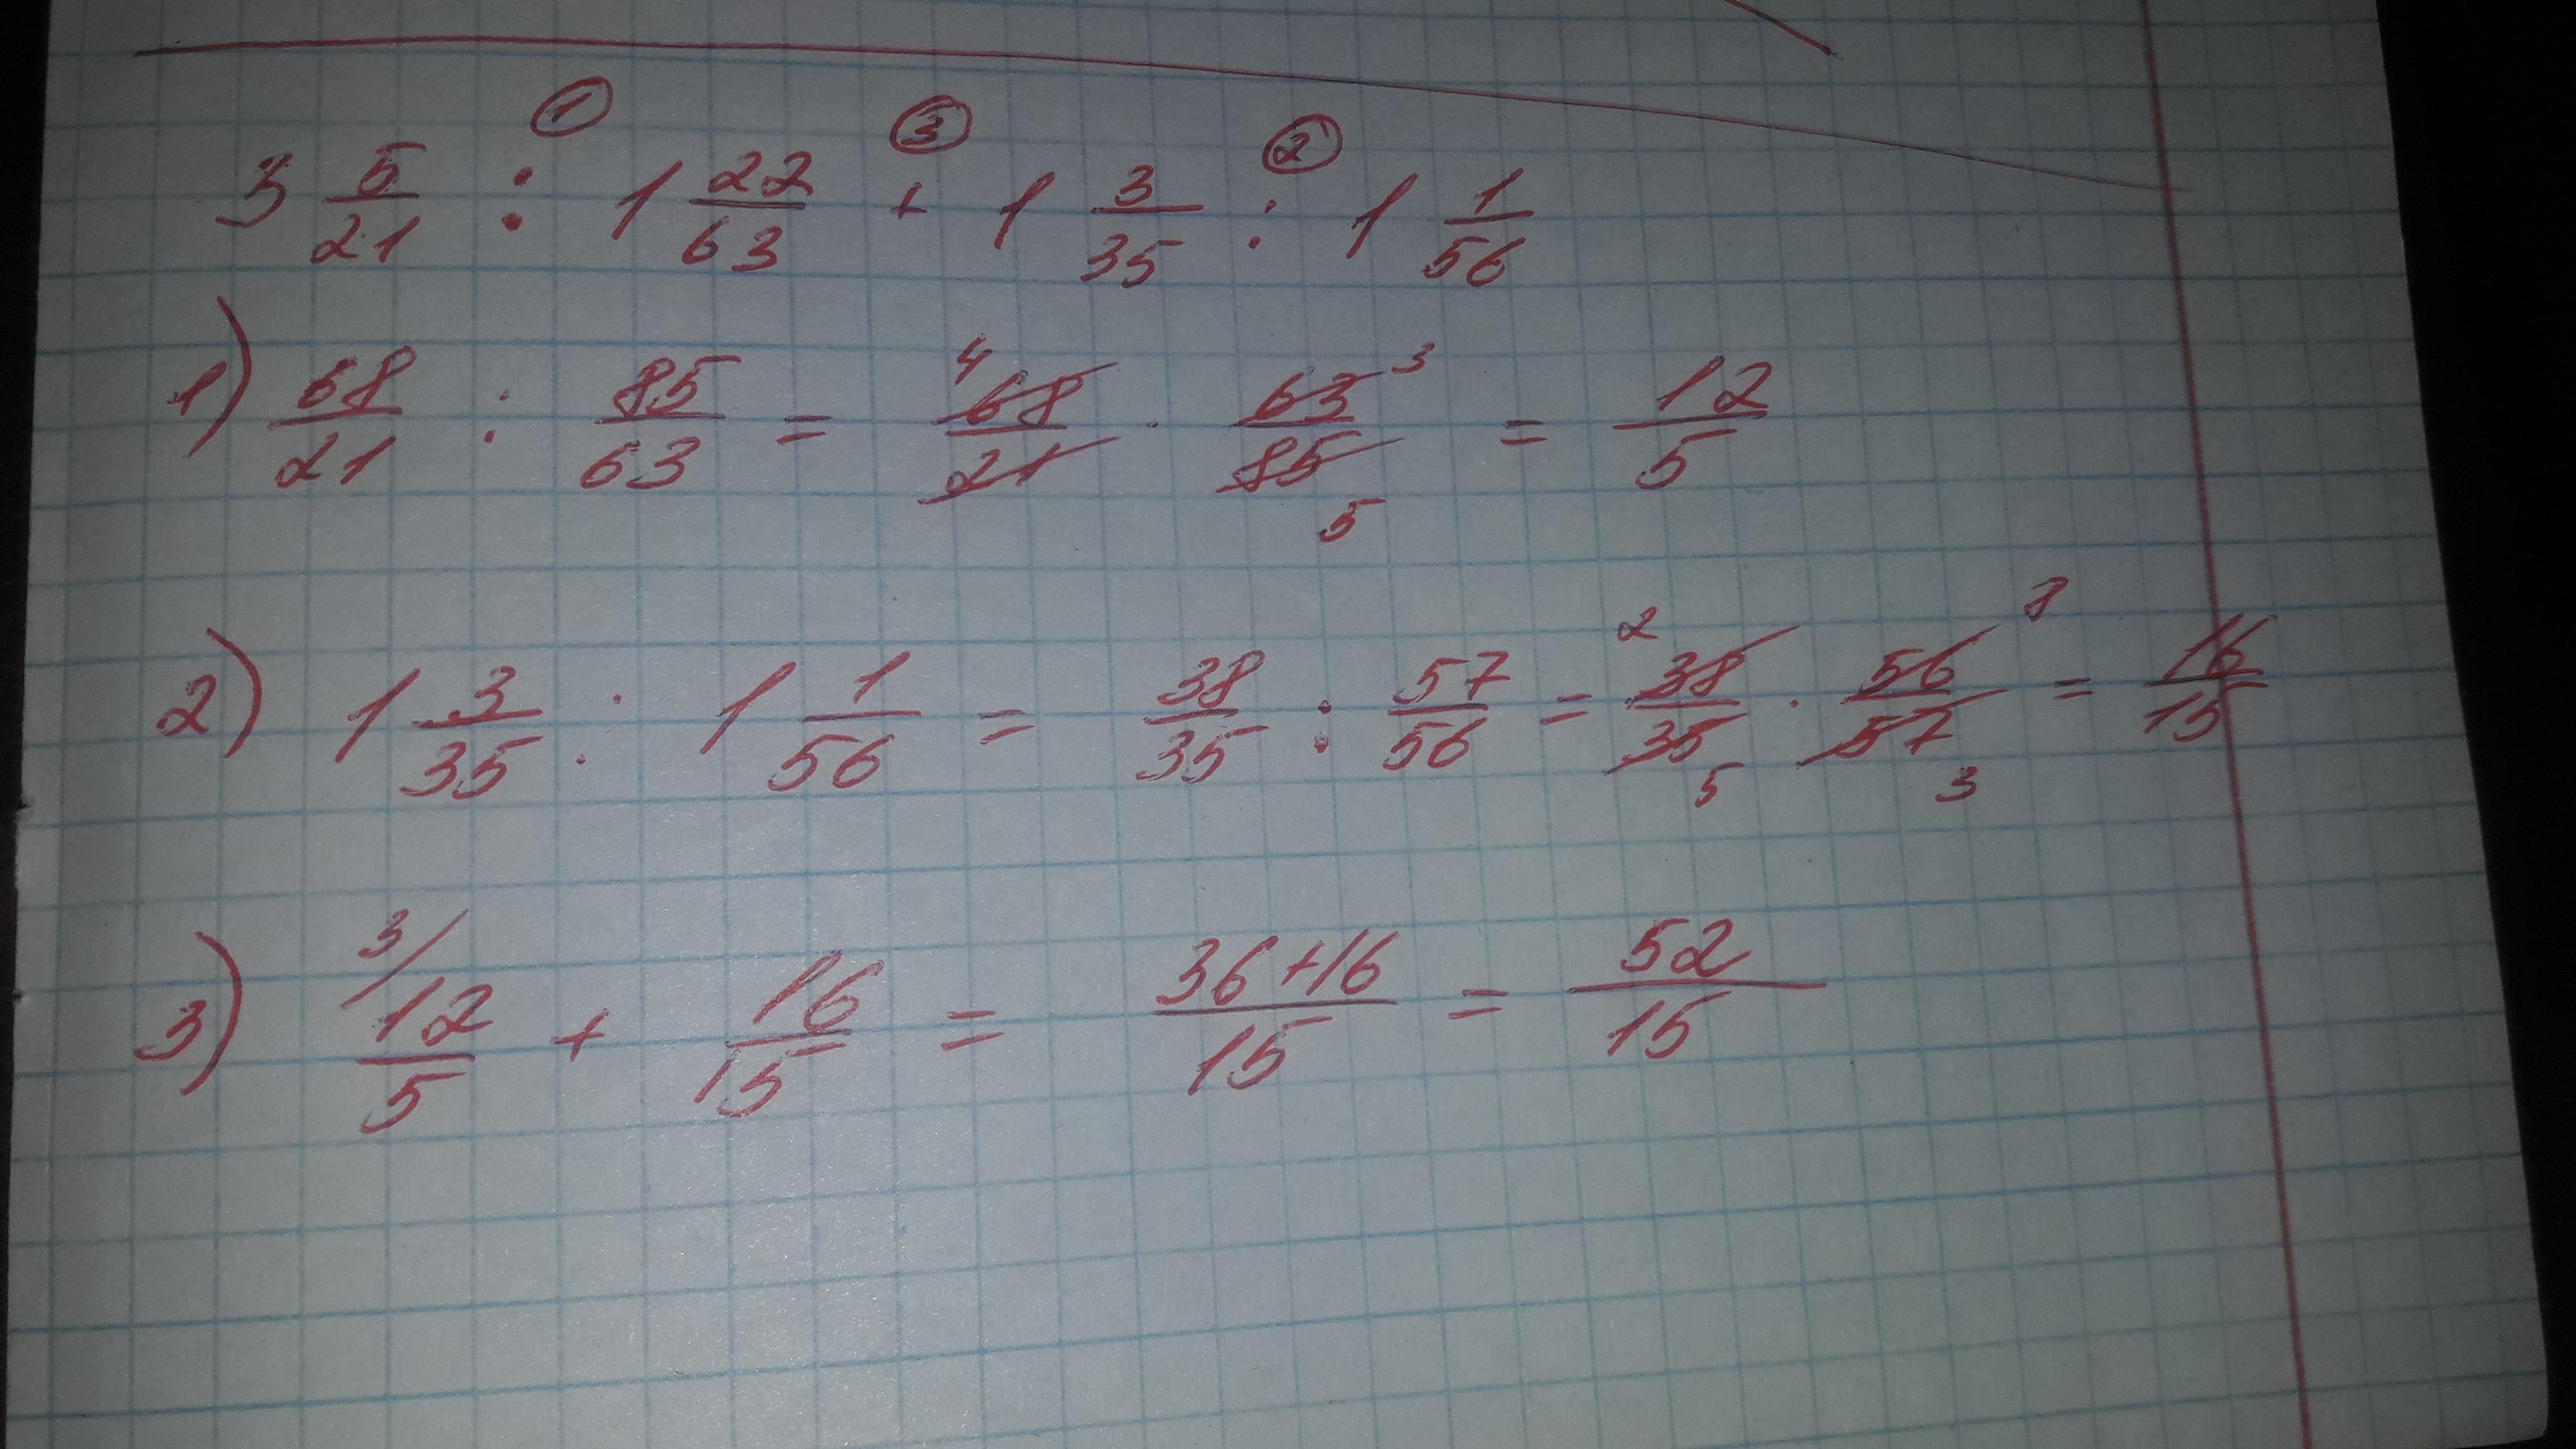 ① ③ ②
3 5/21 : 1 22/63 + 1 3/35 : 1 1/56
1) 68/21 : 85/63 = 4 68/21 · 63/85 3 5 = 12/5
2) 1 3/35 : 1 1/56 = 38/35 : 57/56 = 2 38/35 5 · 56/57 8 3 = 16/15
3) 3/ 12/5 + 16/15 = 36+16/15 = 52/15